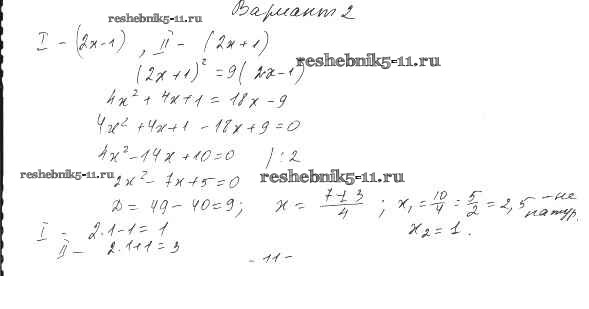 reshebnik5-11.ru Вариант 2
I - (2x-1) , II - (2x+1)
(2x+1)² = 9(2x-1) reshebnik5-11.ru
4x² + 4x+1 = 18x - 9
4x² +4x+1 -18x+9=0
4x²-14x+10=0 /:2
reshebnik5-11.ru 2x²- 7x+5=0 reshebnik5-11.ru
D = 49 - 40=9; x = (7±3)/4 ; x₁ = 10/4 = 5/2 = 2,5 - не натур.
I - 2·1-1= 1 x₂=1.
II - 2·1+1=3
- 11 -